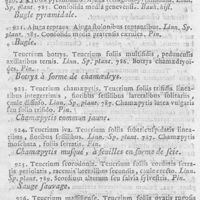 plant. 781. Consolida media genevensis. Bauh. hist.
Bugle pyramidale.
921. Ajuga reptans. Ajuga stolonibus reptantibus. Linn. Sp.
plant. 785. Consolida media pratensis cærulea. Pin.
Bugle.
Teucrium botrys. Teucrium foliis multifidis, pedunculis
axillaribus ternis. Linn. Sp. plant. 786. Botrys chamædryoi-
des. Pin.
Botrys à forme de chamædrys.
923. Teucrium chamæpitys. Teucrium foliis trifidis linea-
ribus integerrimis, floribus sessilibus lateralibus solitariis,
caule diffuso. Linn. Sp. plant. 787. Chamæpitys lutea vulgaris
seu folio trifido. Pin.
Chamæpitys commun jaune.
924. Teucrium iva. Teucrium foliis
floribus sessilibus. Linn. Sp. plant. 787. Chamæpitys
moschata foliis serratis. Pin.
Chamæpitys musqué, à feuilles en forme de scie.
925. Teucrium scorodonia. Teucrium foliis cordatis serra-
tis petiolatis, racemis lateralibus secundis, caule erecto. Linn.
Sp. plant. 789. Scordium alterum seu salvia sylvestris. Pin.
Sauge sauvage.
926. Teucrium massiliense. Teucrium foliis ovatis rugosis